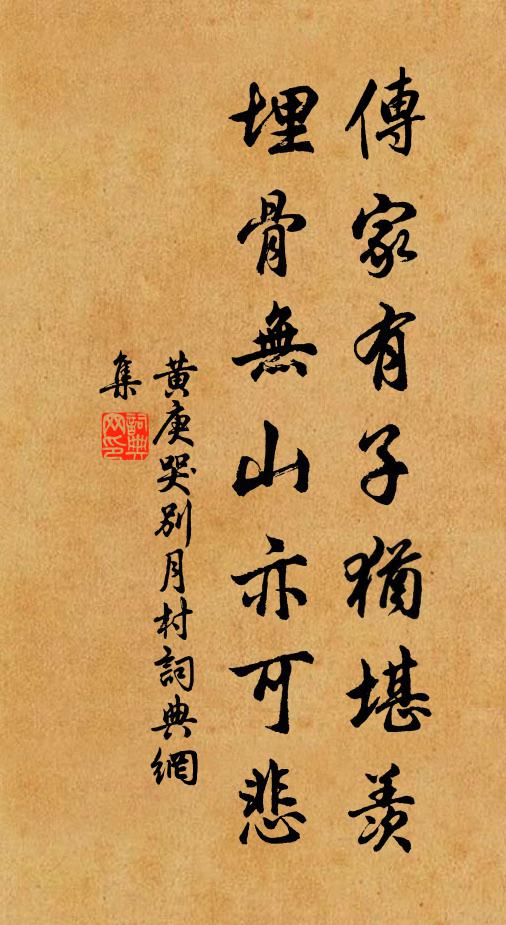 傳家有子猶堪羨
埋骨無山亦可悲
黃庚哭別月村詞典網
集
詞典
网印